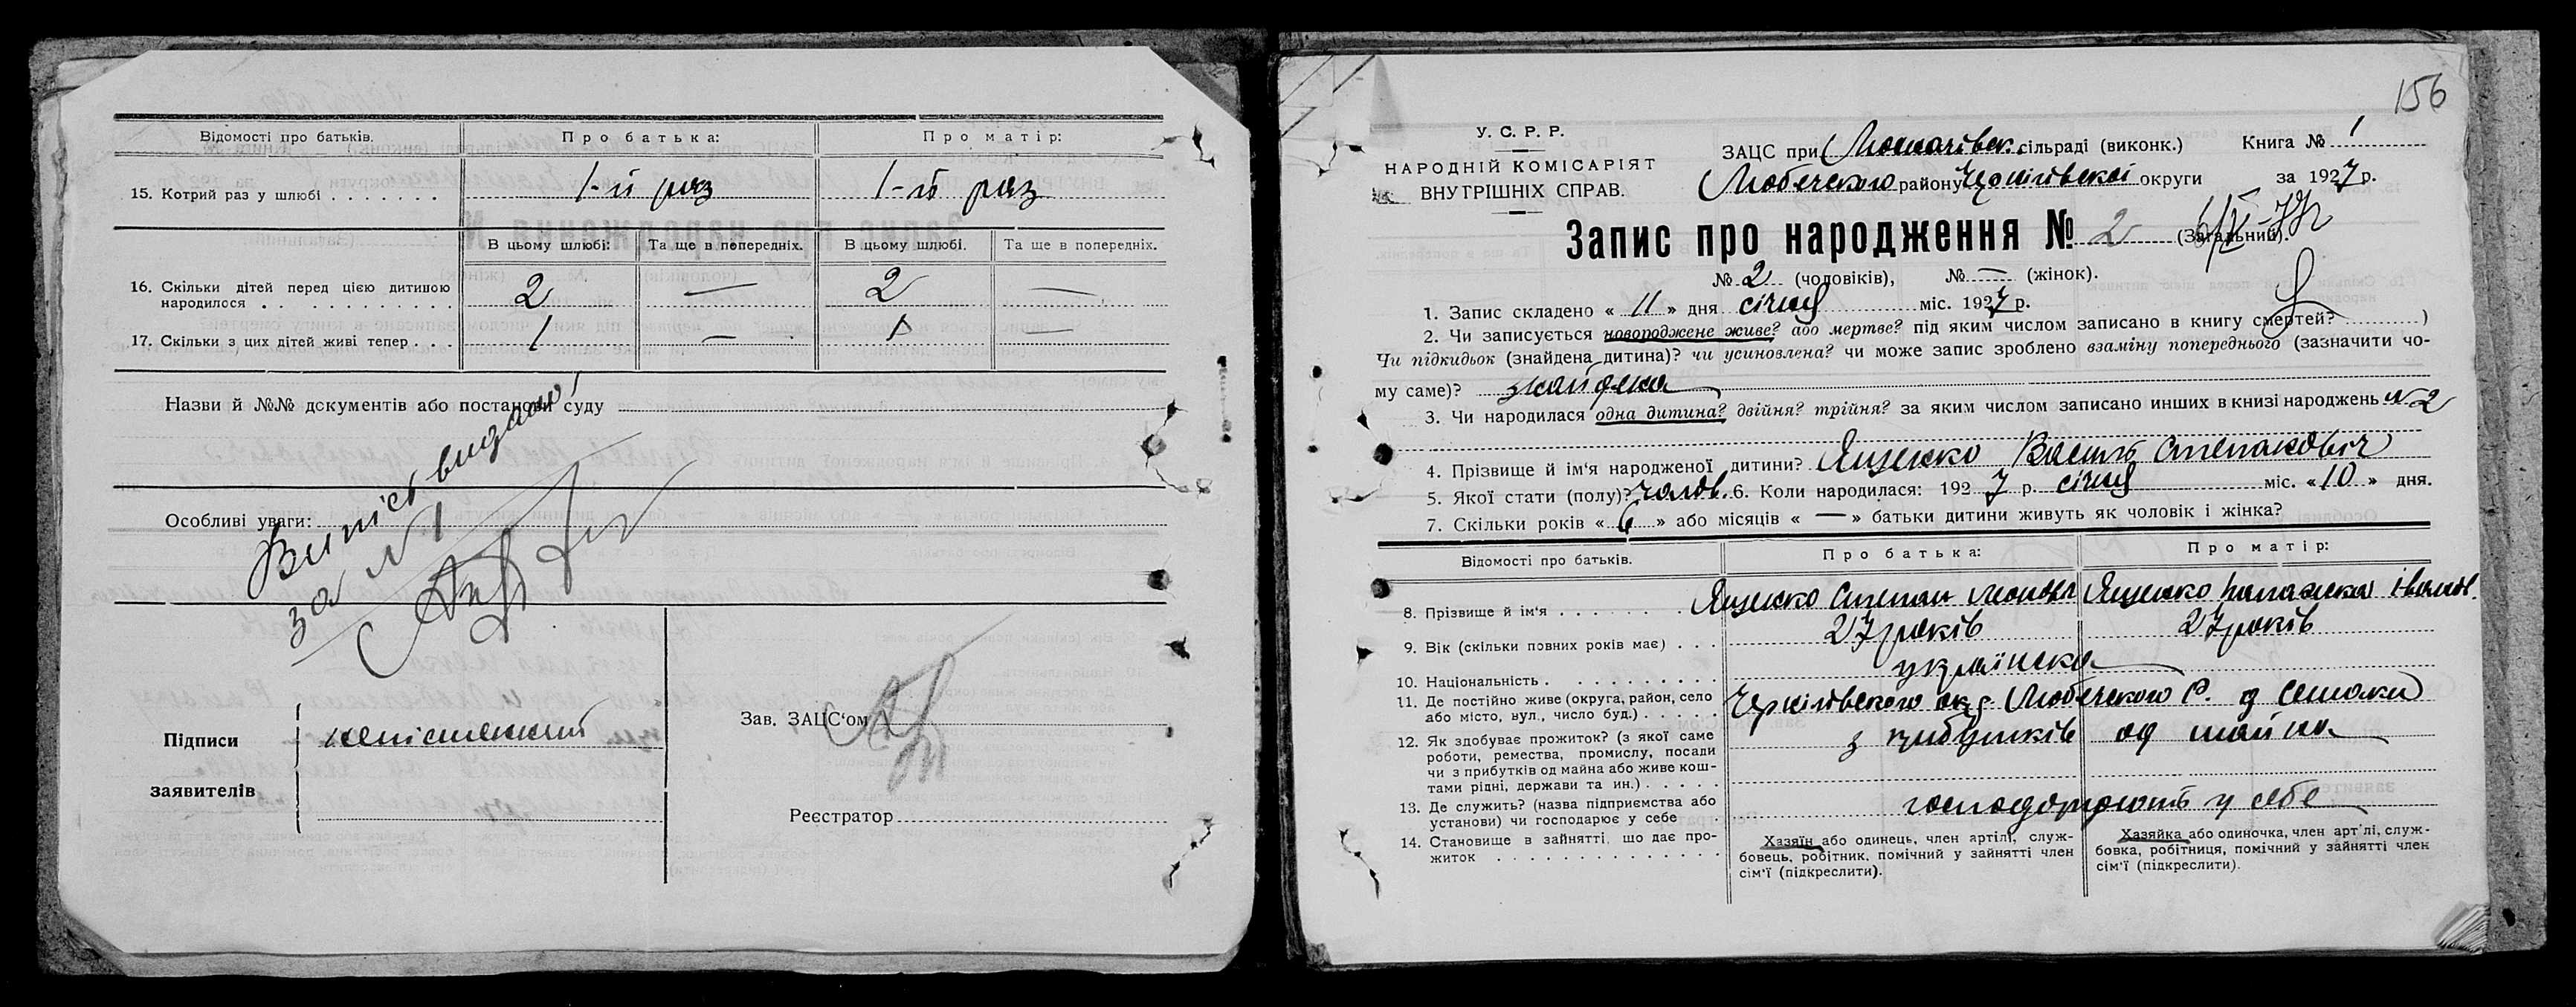 Відомості про батьків. Про батька: Про матір:
15. Котрий раз у шлюбі . . . . . . . 1-й раз 1-й раз
В цьому шлюбі: Та ще в попередніх. В цьому шлюбі. Та ще в попередніх.
16. Скільки дітей перед цією дитиною
народилося . . . . . . . . . . . . 2 — 2 —
17. Скільки з цих дітей живі тепер . . . 1 — 1 —
Назви й №№ документів або постанови суду
Особливі уваги:
Випісь видано
за №1
Підписи
заявителів
неписменний
Зав. ЗАЦС'ом
Реєстратор
156
У. С. Р. Р.
НАРОДНІЙ КОМІСАРІЯТ
ВНУТРІШНІХ СПРАВ.
ЗАЦС при сільраді (виконк.) Книга № 1
Любечского району Чернігівскої округи за 1927 р.
Запис про народження № 2 (Загальний).
№ 2 (чоловіків), № — (жінок).
1. Запис складено « 11 » дня січня міс. 1927 р.
2. Чи записується новороджене живе? або мертве? під яким числом записано в книгу смертей? )
Чи підкидьок (знайдена дитина)? чи усиновлена? чи може запис зроблено взаміну попереднього (зазначити чо-
му саме)?
3. Чи народилася одна дитина? двійня? трійня? за яким числом записано инших в книзі народжень №2
4. Прізвище й ім'я народженої дитини? Ященко Василь Степанович
5. Якої стати (полу)? чолов. 6. Коли народилася: 1927 р. січня міс. «10» дня.
7. Скільки років « 6 » або місяців « — » батьки дитини живуть як чоловік і жінка?
Відомості про батьків. Про батька: Про матір:
8. Прізвище й ім'я . . . . . . . Ященко Степан Ященко Іванов.
9. Вік (скільки повних років має) . . . 27 років 27 років
10. Національність . . . . . . . . . . українска
11. Де постійно живе (округа, район, село
або місто, вул., число буд.) . . . . . Чернігівского окр. Любечского Р. д
12. Як здобуває прожиток? (з якої саме
роботи, ремества, промислу, посади
чи з прибутків од майна або живе кош-
тами рідні, держави та ин.) . . . . . з прибутків од майна
13. Де служить? (назва підприємства або
установи) чи господарює у себе . господарюють у себе
14. Становище в зайнятті, що дає про-
житок . . . . . . . . . . . . . .
Хазяїн або одинець, член артілі, служ-
бовець, робітник, помічний у зайнятті член
сім'ї (підкреслити).
Хазяйка або одиночка, член арт лі, служ-
бовка, робітниця, помічний у зайнятті член
сім'ї (підкреслити).